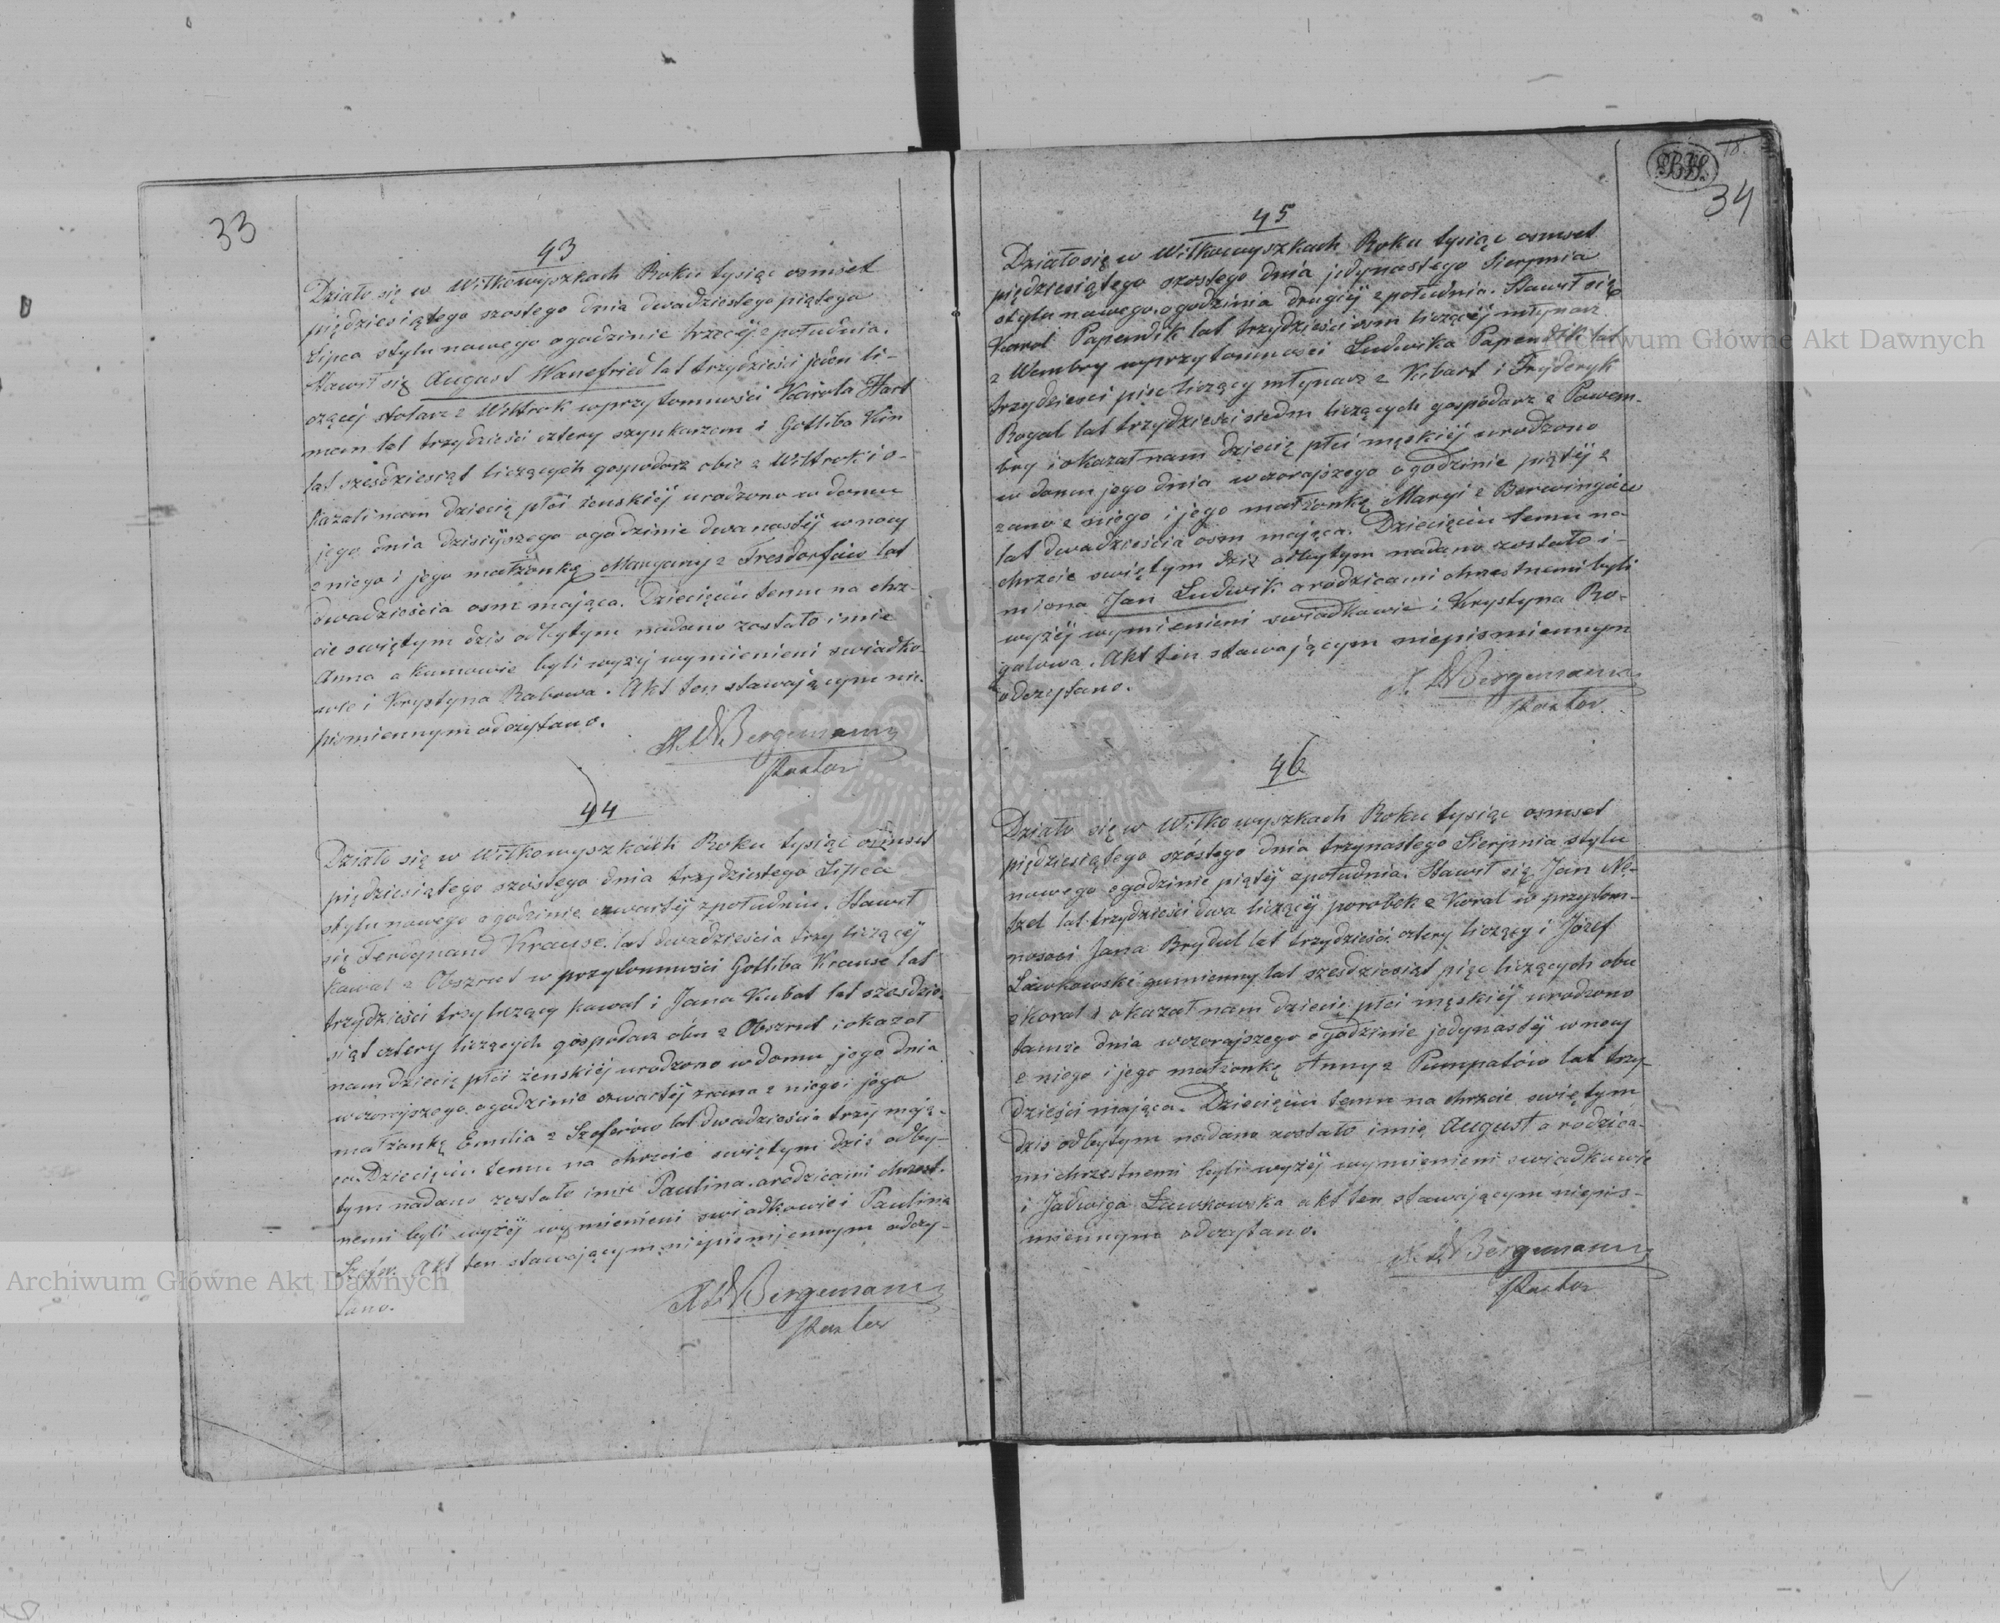 33
43
Działo się w Wiłkowyszkach Roku tysiąc osmset
piędziesiątego szostego dnia dwadziestego piątego
Lipca stylu nowego o godzinie trzeciej z południa.
Stawił się August Wanefried lat trzydzieści jeden li-
czącej stolarz z Wiltrok w przytomności Karola Hart
man lat trzydzieści cztery szynkarzem i Gotliba Kin
lat sześdziesiąt liczących gospodarz obie z Wiltrok i o-
kazali nam dziecię płci żenskiej urodzono w domu
jego dnia dzisiyszego o godzinie dwanastej w nocy
z niego i jego małżonkę Margarny z Fresdorfów lat
dwadzieścia osm mająca. Dziecięciu temu na chrz-
cie swiętym dzis odbytym nadano zostało imie
Anna a kumowie byli wyżej wymienieni swiadko-
wie i Krystyna Rabowa. Akt ten stawającym nie-
pismiennym odczytano.
Bergemann
Pastor
44
Działo się w Wiłkowyszkach Roku tysiąc osmset
piędziesiątego szostego dnia trzydziestego Lipca
stylu nowego o godzinie czwartej z południa. Stawił
się Ferdynand Krause lat dwadzieścia trzy liczącej
kowal z Obszrut w przytomnosci Gotliba Krause lat
trzydzieści trzy liczący kowal i Jana Kubat lat szesdzie-
siąt cztery liczących gospodarz obu z Obszrut i okazał
nam dziecię płci żenskiej urodzono w domu jego dnia
wczorajszego o godzinie czwartej zrana z niego i jego
małżonkę Emilia z Szeferów lat dwadzieścia trzy mają-
ca Dziecięciu temu na chrzcie swiętym dzis odby-
tym nadano zostało imie Paulina a rodzicami chrzest-
nemi byli wyżej wymienieni swiadkowie i Paulina
Szefer. Akt ten stawającym niepismiennym odczy-
tano.
Bergemann
Pastor
34
45
Działo się w Wiłkowyszkach Roku tysiąc osmset
piędziesiątego szostego dnia jedynastego Sierpnia
stylu nowego o godzinia drugiej z południa. Stawił się
Karol Papendik lat trzydzieści osm liczącej młynarz
z Wembry w przytomnosci Ludwika Papendik lat
trzydziesci pięc liczący młynarz z Kibart i Fryderyk
Rogal lat trzydzieści siedm liczących gospodarz z Pawem-
bry i okazał nam dziecię płci męskiej urodzono
w domu jego dnia wczorajszego o godzinie piątej z
rano z niego i jego małżonkę Maryi z Berwingów
lat dwadzieścia osm mająca. Dziecięciu temu na
chrzcie swiętym dzis odbytym nadano zostało i-
miona Jan Ludwik a rodzicami chrzestnemi byli
wyżej wymienieni swiadkowie i Krystyna Ro-
galowa. Akt ten stawającym niepismiennym
odczytano.
Bergemann
Pastor
46
Działo się w Wiłkowyszkach Roku tysiąc osmset
piędziesiątego szóstego dnia trzynastego Sierpnia stylu
nowego o godzinie piątej z południa. Stawił się Jan Ne-
tzel lat trzydzieści dwa liczącej porobek z Koral w przytom-
nosci Jana Brydul lat trzydzieści cztery liczący i Józef
Ławkowski gumienny lat szesdziesiąt pięc liczących obu
z Koral i okazał nam dziecię płci męskiej urodzono
tamże dnia wczorajszego o godzinie jedynastej w nocy
z niego i jego małżonkę Anny z Pumpatów lat trzy-
dzieści mająca. Dziecięciu temu na chrzcie swiętym
dzis odbytym nadano zostało imię August a rodzica-
mi chrzestnemi byli wyżej wymienieni swiadkowie
i Jadwiga Ławkowska akt ten stawającym niepis-
miennym odczytano.
Bergemann
Pastor
Archiwum Główne Akt Dawnych
Archiwum Główne Akt Dawnych